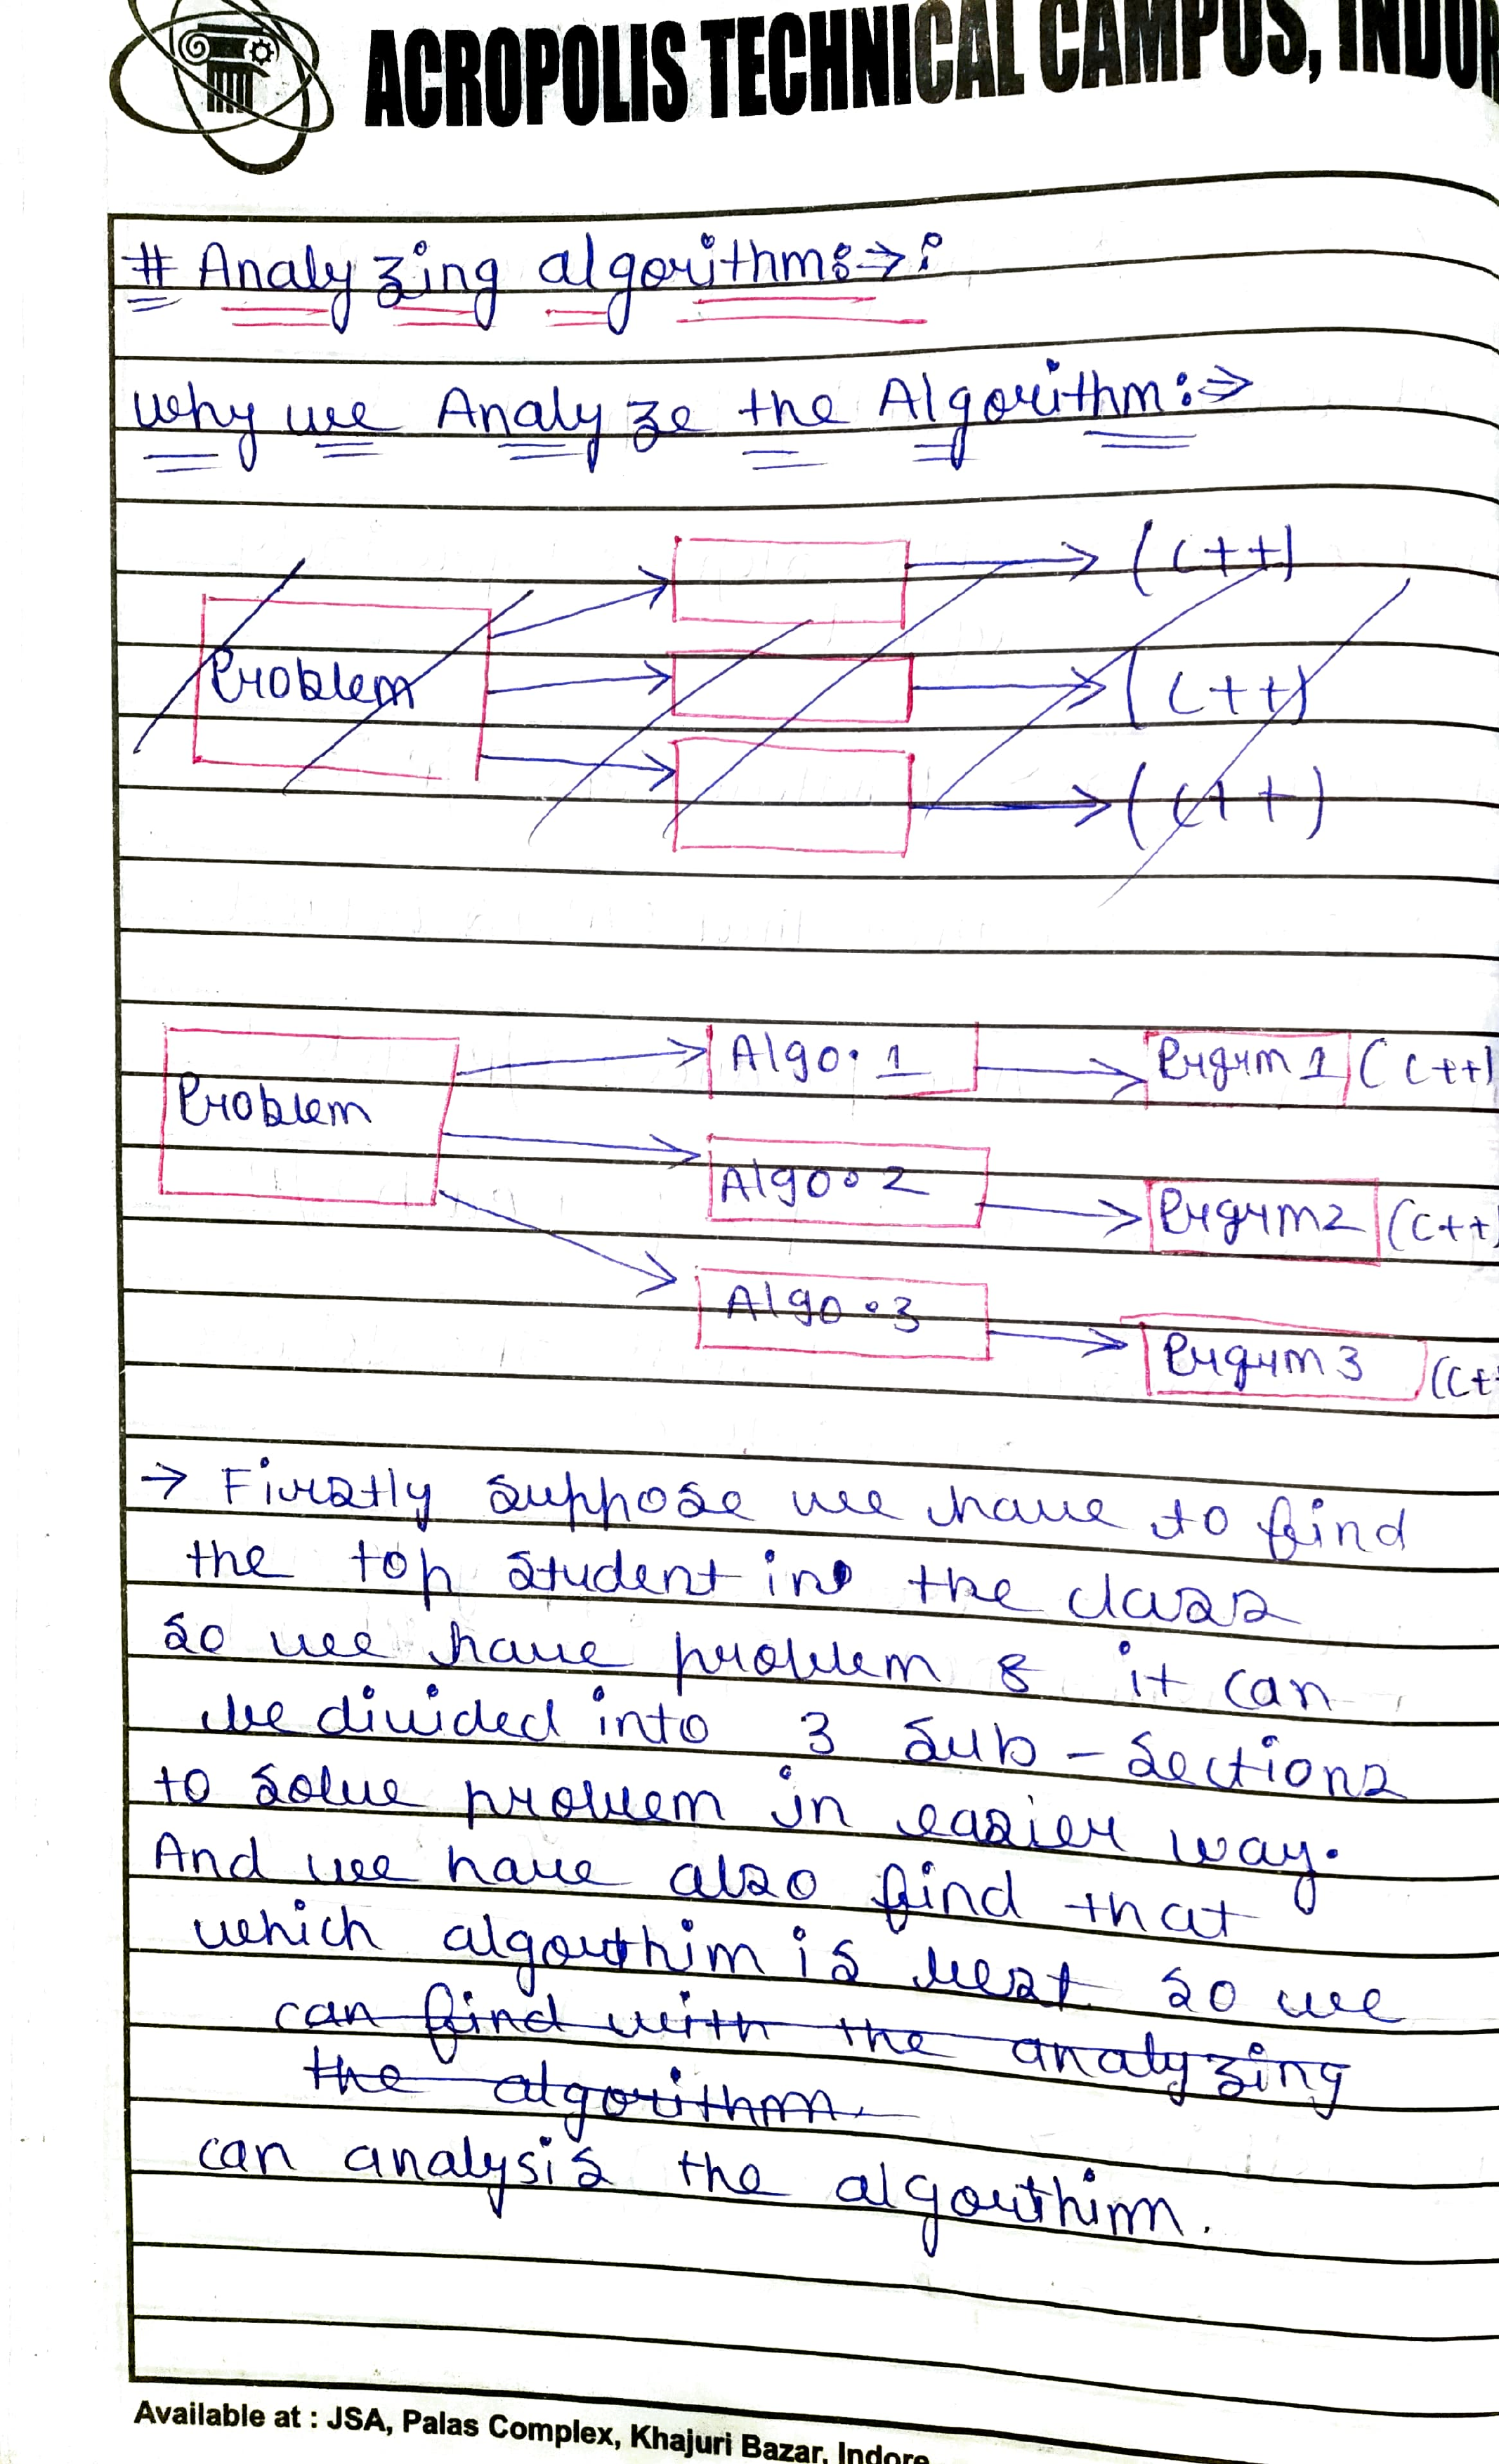 ACROPOLIS TECHNICAL CAMPUS, INDOR
# Analyzing algorithms:→:
why we Analyze the Algorithm:⇒
(C++)
Problem
(C++)
(C++)
Algo. 1 Prgrm 1 (C++)
Problem
Algo. 2 Prgrm2 (C++)
Algo. 3 Prgrm 3 (C+
→ Firstly suppose we have to find
the top student in the class
so we have problem & it can
be divided into 3 sub-sections
to solve problem in easier way.
And we have also find that
which algorthim is best so we
can find with the analyzing
the algorithm.
can analysis the algorthim.
Available at : JSA, Palas Complex, Khajuri Bazar, Indore